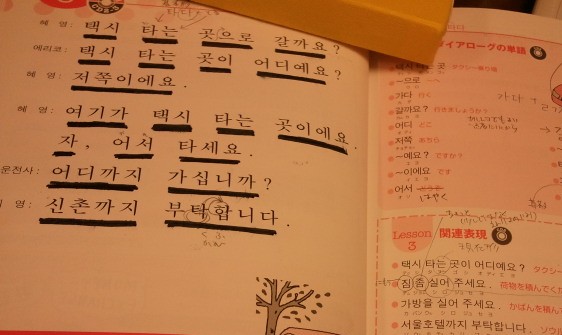 혜 영: 택시 타는 곳으로 갈까요?
에리코: 택시 타는 곳이 어디예요?
혜 영: 저쪽이에요.
혜 영: 여기가 택시 타는 곳이에요.
자, 어서 타세요.
운전사: 어디까지 가십니까?
영: 신촌까지 부탁합니다.
イアローグの単語
는 곳 タクシー乗り場
~으로 ~へ
가다 行く
갈까요? 行きましょうか?
어디 どこ
저쪽 あちら
~예요? ですか?
~이에요 です
어서 どうぞ
はやく
가다
Lesson 3 関連表現
택시 타는 곳이 어디예요? タクシー
짐(좀) 실어 주세요. 荷物を積んでくだ
가방을 실어 주세요. かばんを積ん
서울호텔까지 부탁합니다. ソウル